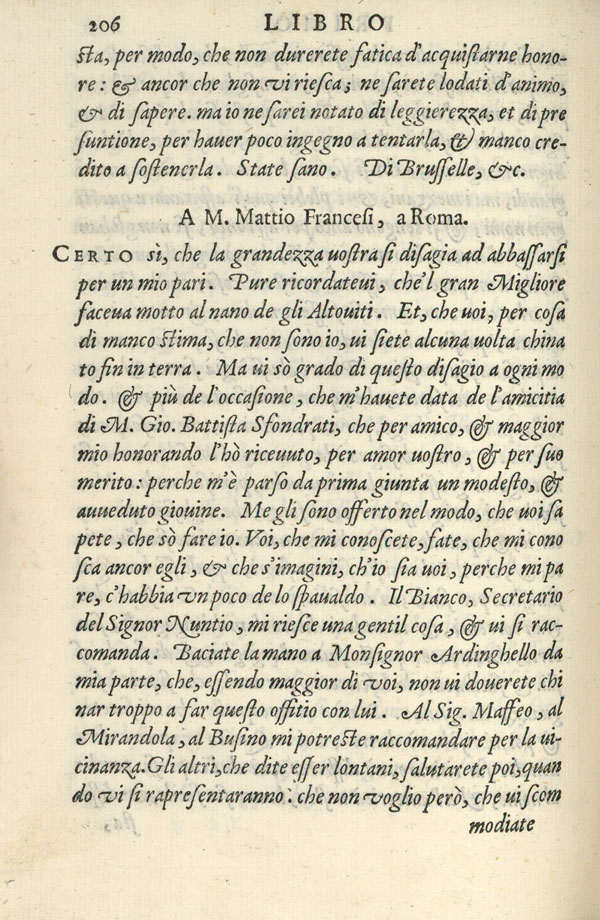 206 LIBRO
sta, per modo, che non durerete fatica d'acquistarne hono-
re: & ancor che non vi riesca; ne sarete lodati d'animo,
& di sapere. ma io ne sarei notato di leggierezza, et di pre
suntione, per hauer poco ingegno a tentarla, & manco cre-
dito a sostenerla. State sano. Di Brusselle, &c.
A M. Mattio Francesi, a Roma.
CERTO sì, che la grandezza uostra si disagia ad abbassarsi
per un mio pari. Pure ricordateui, che'l gran Migliore
faceua motto al nano de gli Altouiti. Et, che uoi, per cosa
di manco stima, che non sono io, ui siete alcuna uolta china
to fin in terra. Ma ui sò grado di questo disagio a ogni mo
do. & più de l'occasione, che m'hauete data de l'amicitia
di M. Gio. Battista Sfondrati, che per amico, & maggior
mio honorando l'hò riceuuto, per amor uostro, & per suo
merito: perche m'è parso da prima giunta un modesto, &
auueduto giouine. Me gli sono offerto nel modo, che uoi sa
pete, che sò fare io. Voi, che mi conoscete, fate, che mi cono
sca ancor egli, & che s'imagini, ch'io sia uoi, perche mi pa
re, c'habbia vn poco de lo spaualdo. Il Bianco, Secretario
del Signor Nuntio, mi riesce una gentil cosa, & ui si rac-
comanda. Baciate la mano a Monsignor Ardinghello da
mia parte, che, essendo maggior di voi, non ui douerete chi
nar troppo a far questo offitio con lui. Al Sig. Maffeo, al
Mirandola, al Busino mi potreste raccomandare per la ui-
cinanza. Gli altri, che dite esser lontani, salutarete poi, quan
do vi si rapresentaranno. che non voglio però, che ui scom
modiate